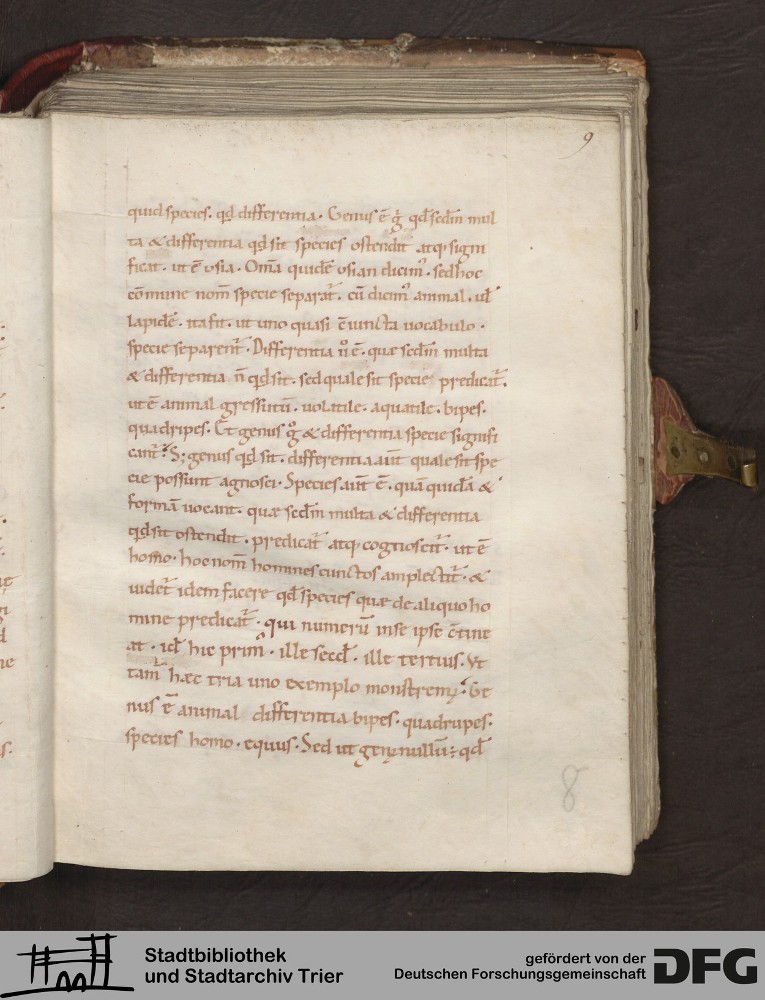 9
quid species. qd̄ differentia. Genus ē g̊ qd̄ sedm̄ mul
ta & differentia qd̄ sit species ostendit atq; signi
ficat. ut ē usia. Om̄a quidē usian dicim᷒. sed hoc
cōmune nom̄ specie separat̄. cū dicim᷒ animal. ul̄
lapidē. ita fit. ut uno quasi ēiuncta uocabulo.
specie separent̄. Differentia ů ē. quæ sedm̄ multa
& differentia n̄ qd̄ sit. sed quale sit specie predicat̄.
ut ē animal gressutū. uolatile. aquatile. bipes.
quadripes. Et genus g̊ & differentia specie signifi
cant̄. S; genus qd̄ sit. differentia aut̄ quale sit spe
cie possunt agnosci. Species aut̄ ē. quā quidā &
formā uocant. quæ sedm̄ multa & differentia
qd̄ sit ostendit. predicat̄ atq; cognoscit̄. ut ē
homo. hoc nom̄ homines cunctos amplectit̄. &
uidet̄ idem facere qd̄ species quæ de aliquo ho
mine predicat̄. qui numerū in se ipse c̄tine
at. id̄ hic prim᷒. ille secd̄. ille tertius. Vt
tam̄ hæc tria uno exemplo monstrem᷒. Ge
nus ē animal differentia bipes. quadrupes.
species homo. equus. Sed ut gen᷒ nullū; qd̄
8
Stadtbibliothek
und Stadtarchiv Trier
gefördert von der
Deutschen Forschungsgemeinschaft
DFG